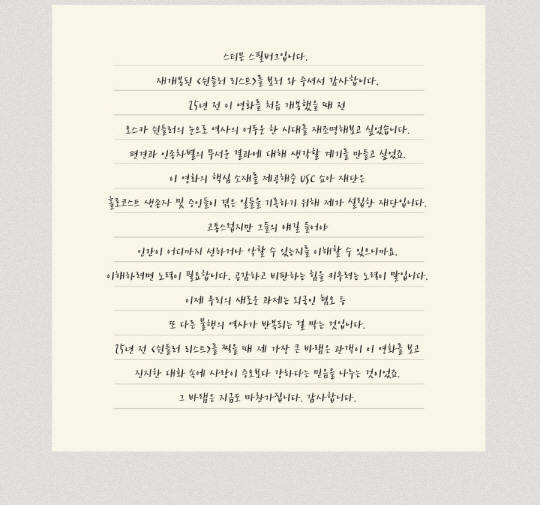 스티븐 스필버그입니다.
재개봉된 <쉰들러 리스트>를 보러 와 주셔서 감사합니다.
25년 전 이 영화를 처음 개봉했을 때 전
오스카 쉰들러의 눈으로 역사의 어두운 한 시대를 재조명해보고 싶었습니다.
편견과 인종차별의 무서운 결과에 대해 생각할 계기를 만들고 싶었죠.
이 영화의 핵심 소재를 제공해준 USC 쇼아 재단은
홀로코스트 생존자 및 증인들이 겪은 일들을 기록하기 위해 제가 설립한 재단입니다.
고통스럽지만 그들의 얘길 들어야
인간이 어디까지 선하거나 악할 수 있는지를 이해할 수 있으니까요.
이해하려면 노력이 필요합니다. 공감하고 비판하는 힘을 키우려는 노력이 말입니다.
이제 우리의 새로운 과제는 외국인 혐오 등
또 다른 불행의 역사가 반복되는 걸 막는 것입니다.
25년 전 <쉰들러 리스트>를 찍을 때 제 가장 큰 바램은 관객이 이 영화를 보고
진지한 대화 속에 사랑이 증오보다 강하다는 믿음을 나누는 것이었죠.
그 바램은 지금도 마찬가집니다. 감사합니다.